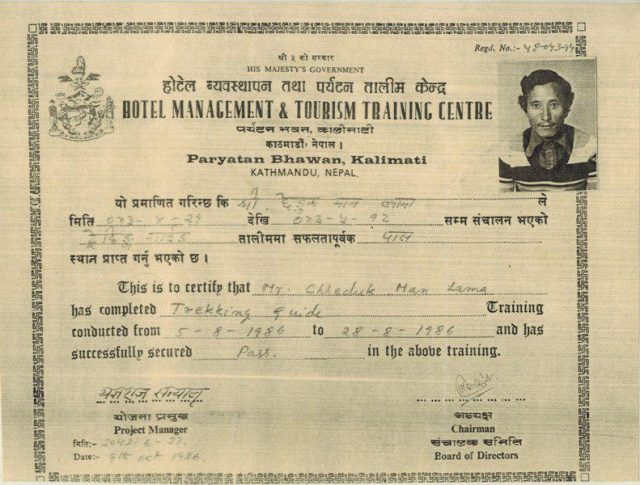 Regd. No.:-
श्री ५ को सरकार
HIS MAJESTY'S GOVERNMENT
होटेल व्यवस्थापन तथा पर्यटन तालीम केन्द्र
HOTEL MANAGEMENT & TOURISM TRAINING CENTRE
पर्यटन भवन, कालीमाटी
काठमाडौं, नेपाल ।
Paryatan Bhawan, Kalimati
KATHMANDU, NEPAL.
यो प्रमाणित गरिन्छ कि श्री मान लामा ले
मिति ०४३-४-२१ देखि ०४३-५-१२ सम्म संचालन भएको
तालीममा सफलतापूर्वक पास
स्थान प्राप्त गर्नु भएको छ ।
This is to certify that Mr. Chheduk Man Lama
has completed Trekking Guide Training
conducted from 5-8-1986 to 28-8-1986 and has
successfully secured Pass. in the above training.
योजना प्रमुख
Project Manager
मिति:- 2043-6-23.
Date:- 9th oct 1986
अध्यक्ष
Chairman
संचालक समिति
Board of Directors